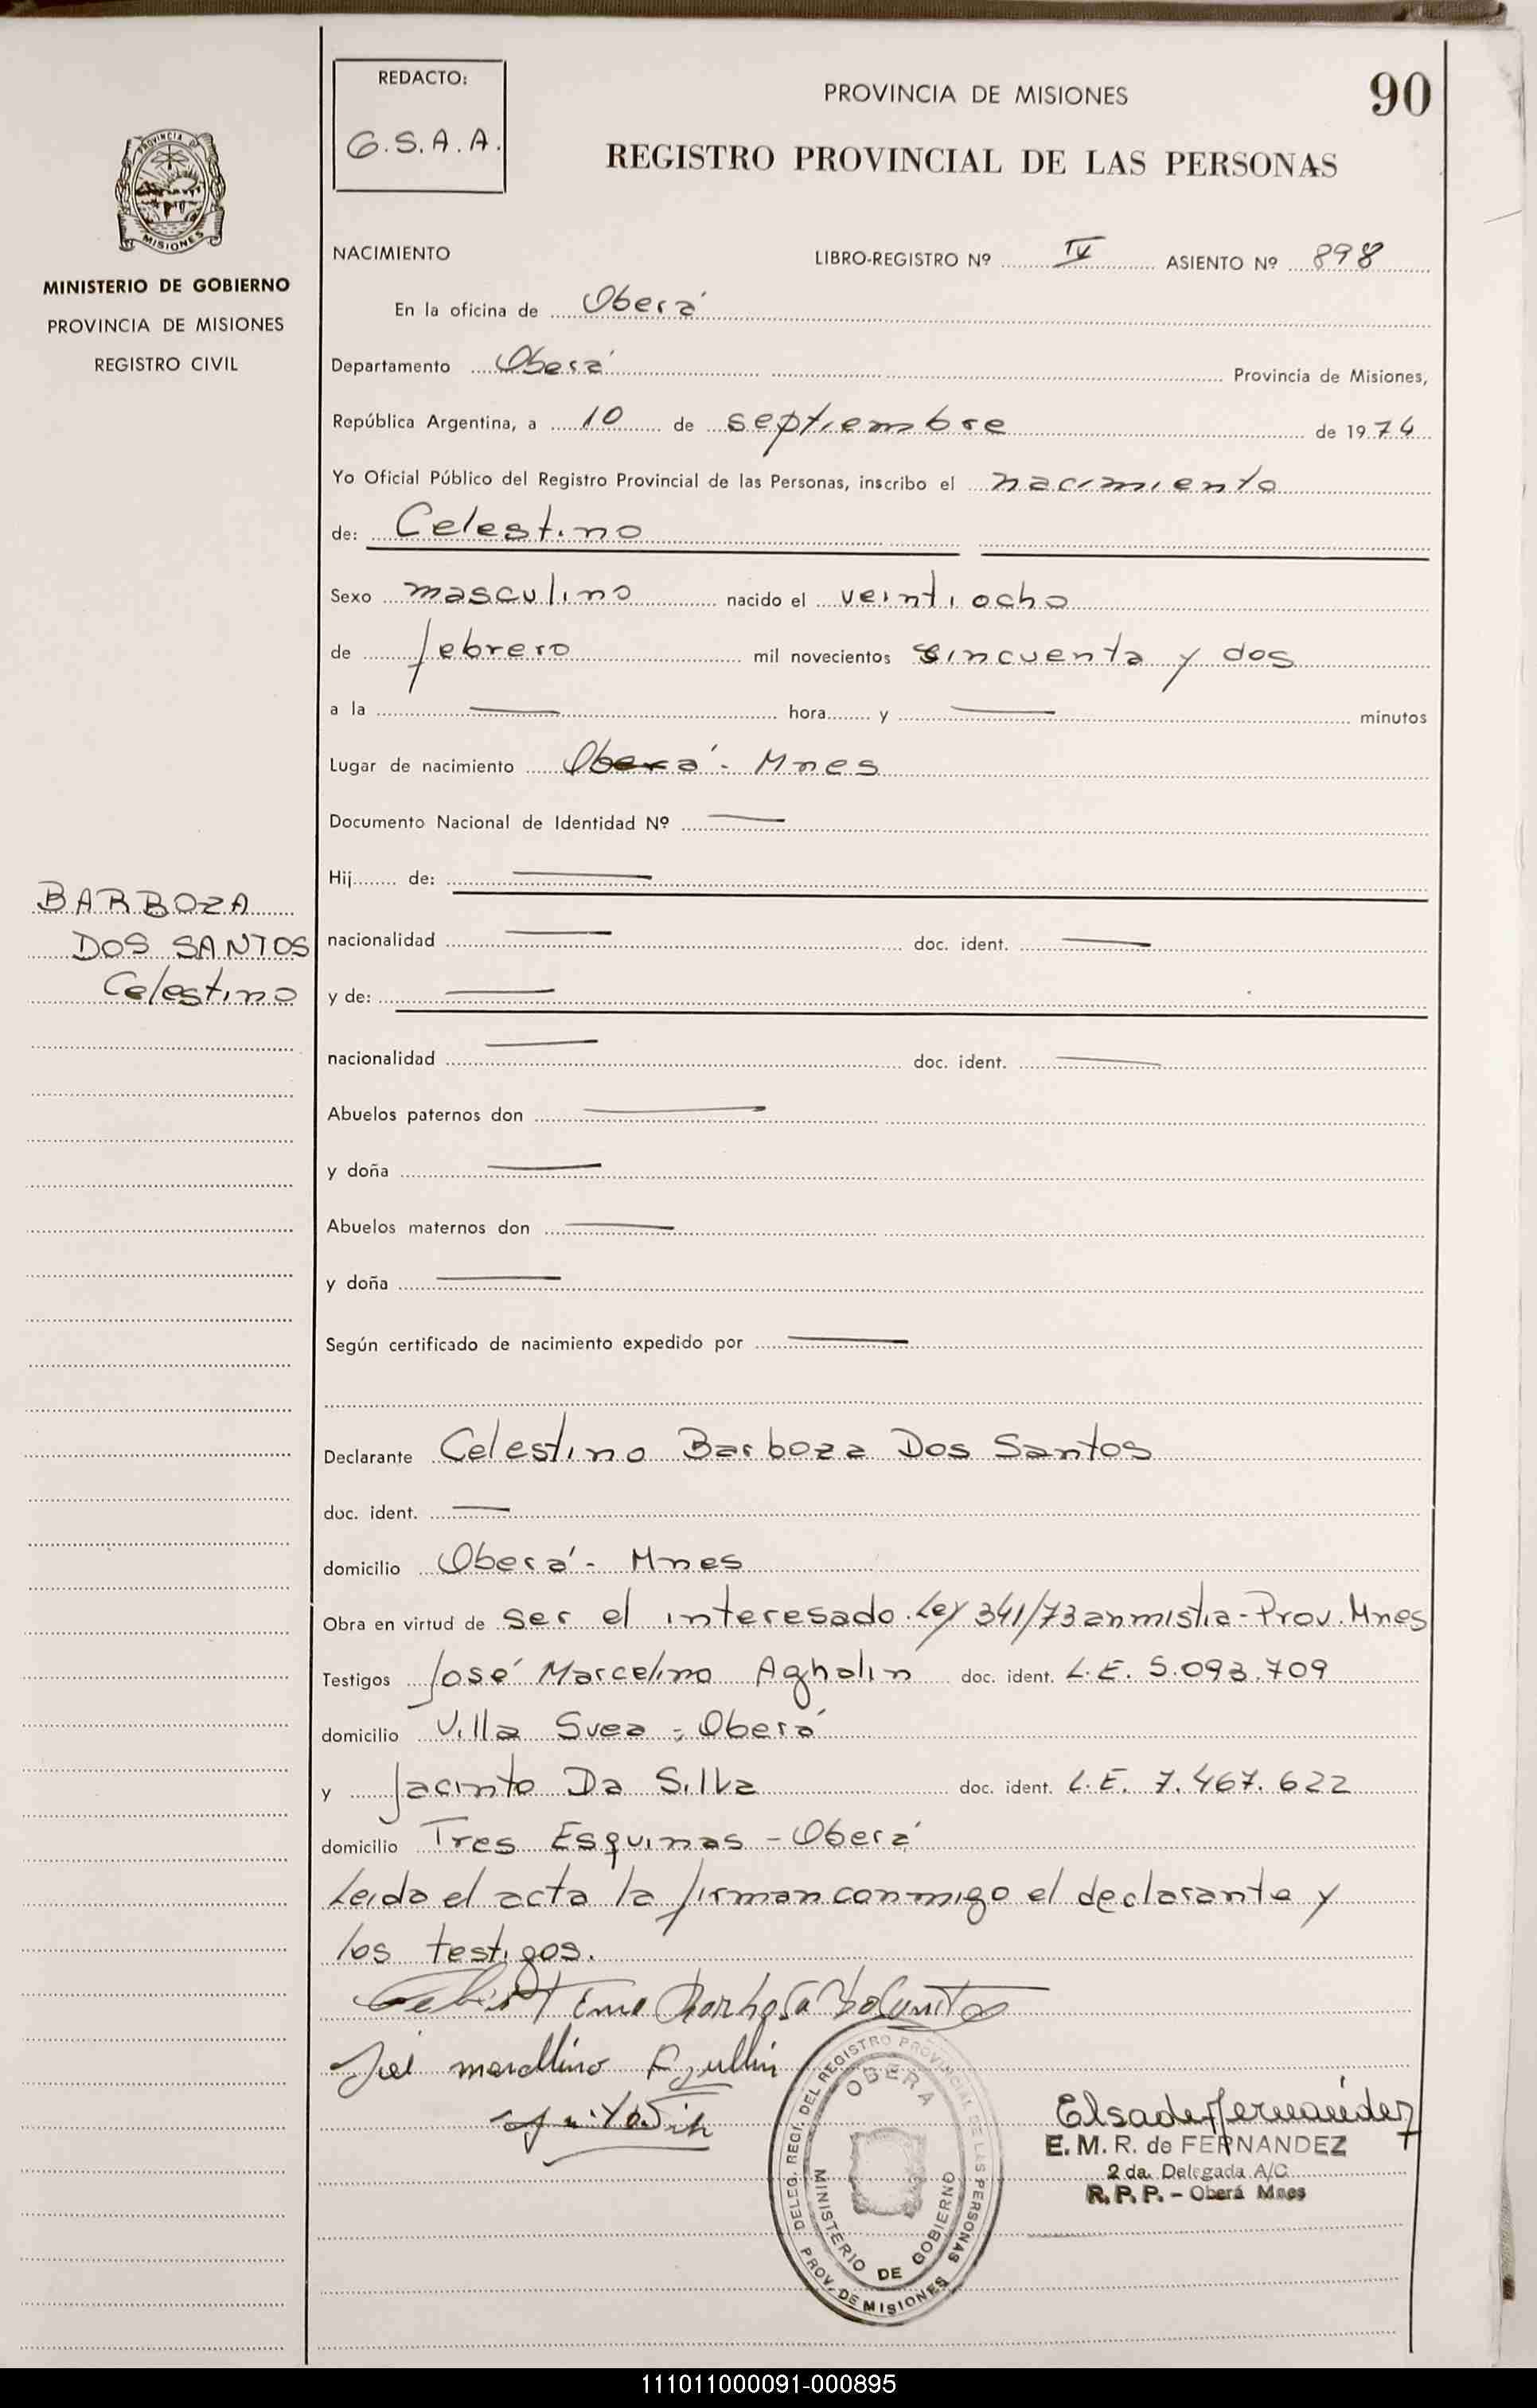 REDACTO:
G.S.A.A.
PROVINCIA DE MISIONES
90
REGISTRO PROVINCIAL DE LAS PERSONAS
PROVINCIA DE
MISIONES
MINISTERIO DE GOBIERNO
PROVINCIA DE MISIONES
REGISTRO CIVIL
NACIMIENTO LIBRO-REGISTRO Nº IV ASIENTO Nº 898
En la oficina de Oberá
Departamento Oberá Provincia de Misiones,
República Argentina, a 10 de septiembre de 1974
Yo Oficial Público del Registro Provincial de las Personas, inscribo el nacimiento
de: Celestino
Sexo masculino nacido el veintiocho
de febrero mil novecientos cincuenta y dos
a la — hora y — minutos
Lugar de nacimiento Oberá - Mnes
Documento Nacional de Identidad Nº —
Hij de: —
BARBOZA
DOS SANTOS
Celestino
nacionalidad — doc. ident. —
y de: —
nacionalidad — doc. ident. —
Abuelos paternos don —
y doña —
Abuelos maternos don —
y doña —
Según certificado de nacimiento expedido por —
Declarante Celestino Barboza Dos Santos
doc. ident. —
domicilio Oberá - Mnes
Obra en virtud de ser el interesado. Ley 341/73 anmistia - Prov. Mnes
Testigos José Marcelino Agholin doc. ident. L.E. 5.093.709
domicilio Villa Svea - Oberá
y Jacinto Da Silva doc. ident. L.E. 7.467.622
domicilio Tres Esquinas - Oberá
Leida el acta la firman conmigo el declarante y
los testigos.
DELEG. REGI. DEL REGISTRO PROVINCIAL DE LAS PERSONAS
OBERA
MINISTERIO DE GOBIERNO
PROV. DE MISIONES
Elsa de Fernández
E. M. R. de FERNANDEZ
2 da. Delegada A/C
R. P. P. - Oberá Mnes
111011000091-000895